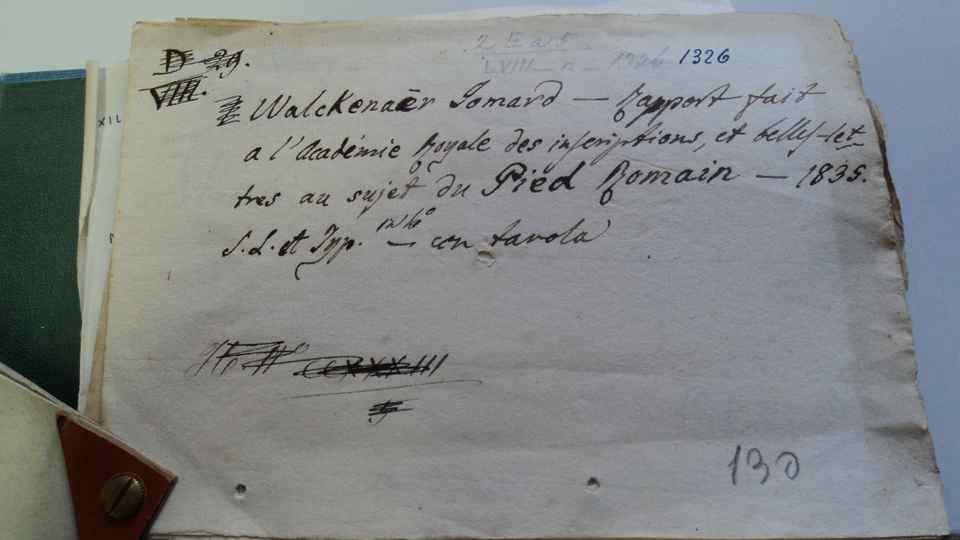 D 29.
VIII.
1326
Walckenaër Jomard — Rapport fait
a l'Académie Royale des inscriptions, et belles-let
tres au sujet du Pied Romain — 1835.
S. L. et Typ. — con tavola
CCXXXIII
130